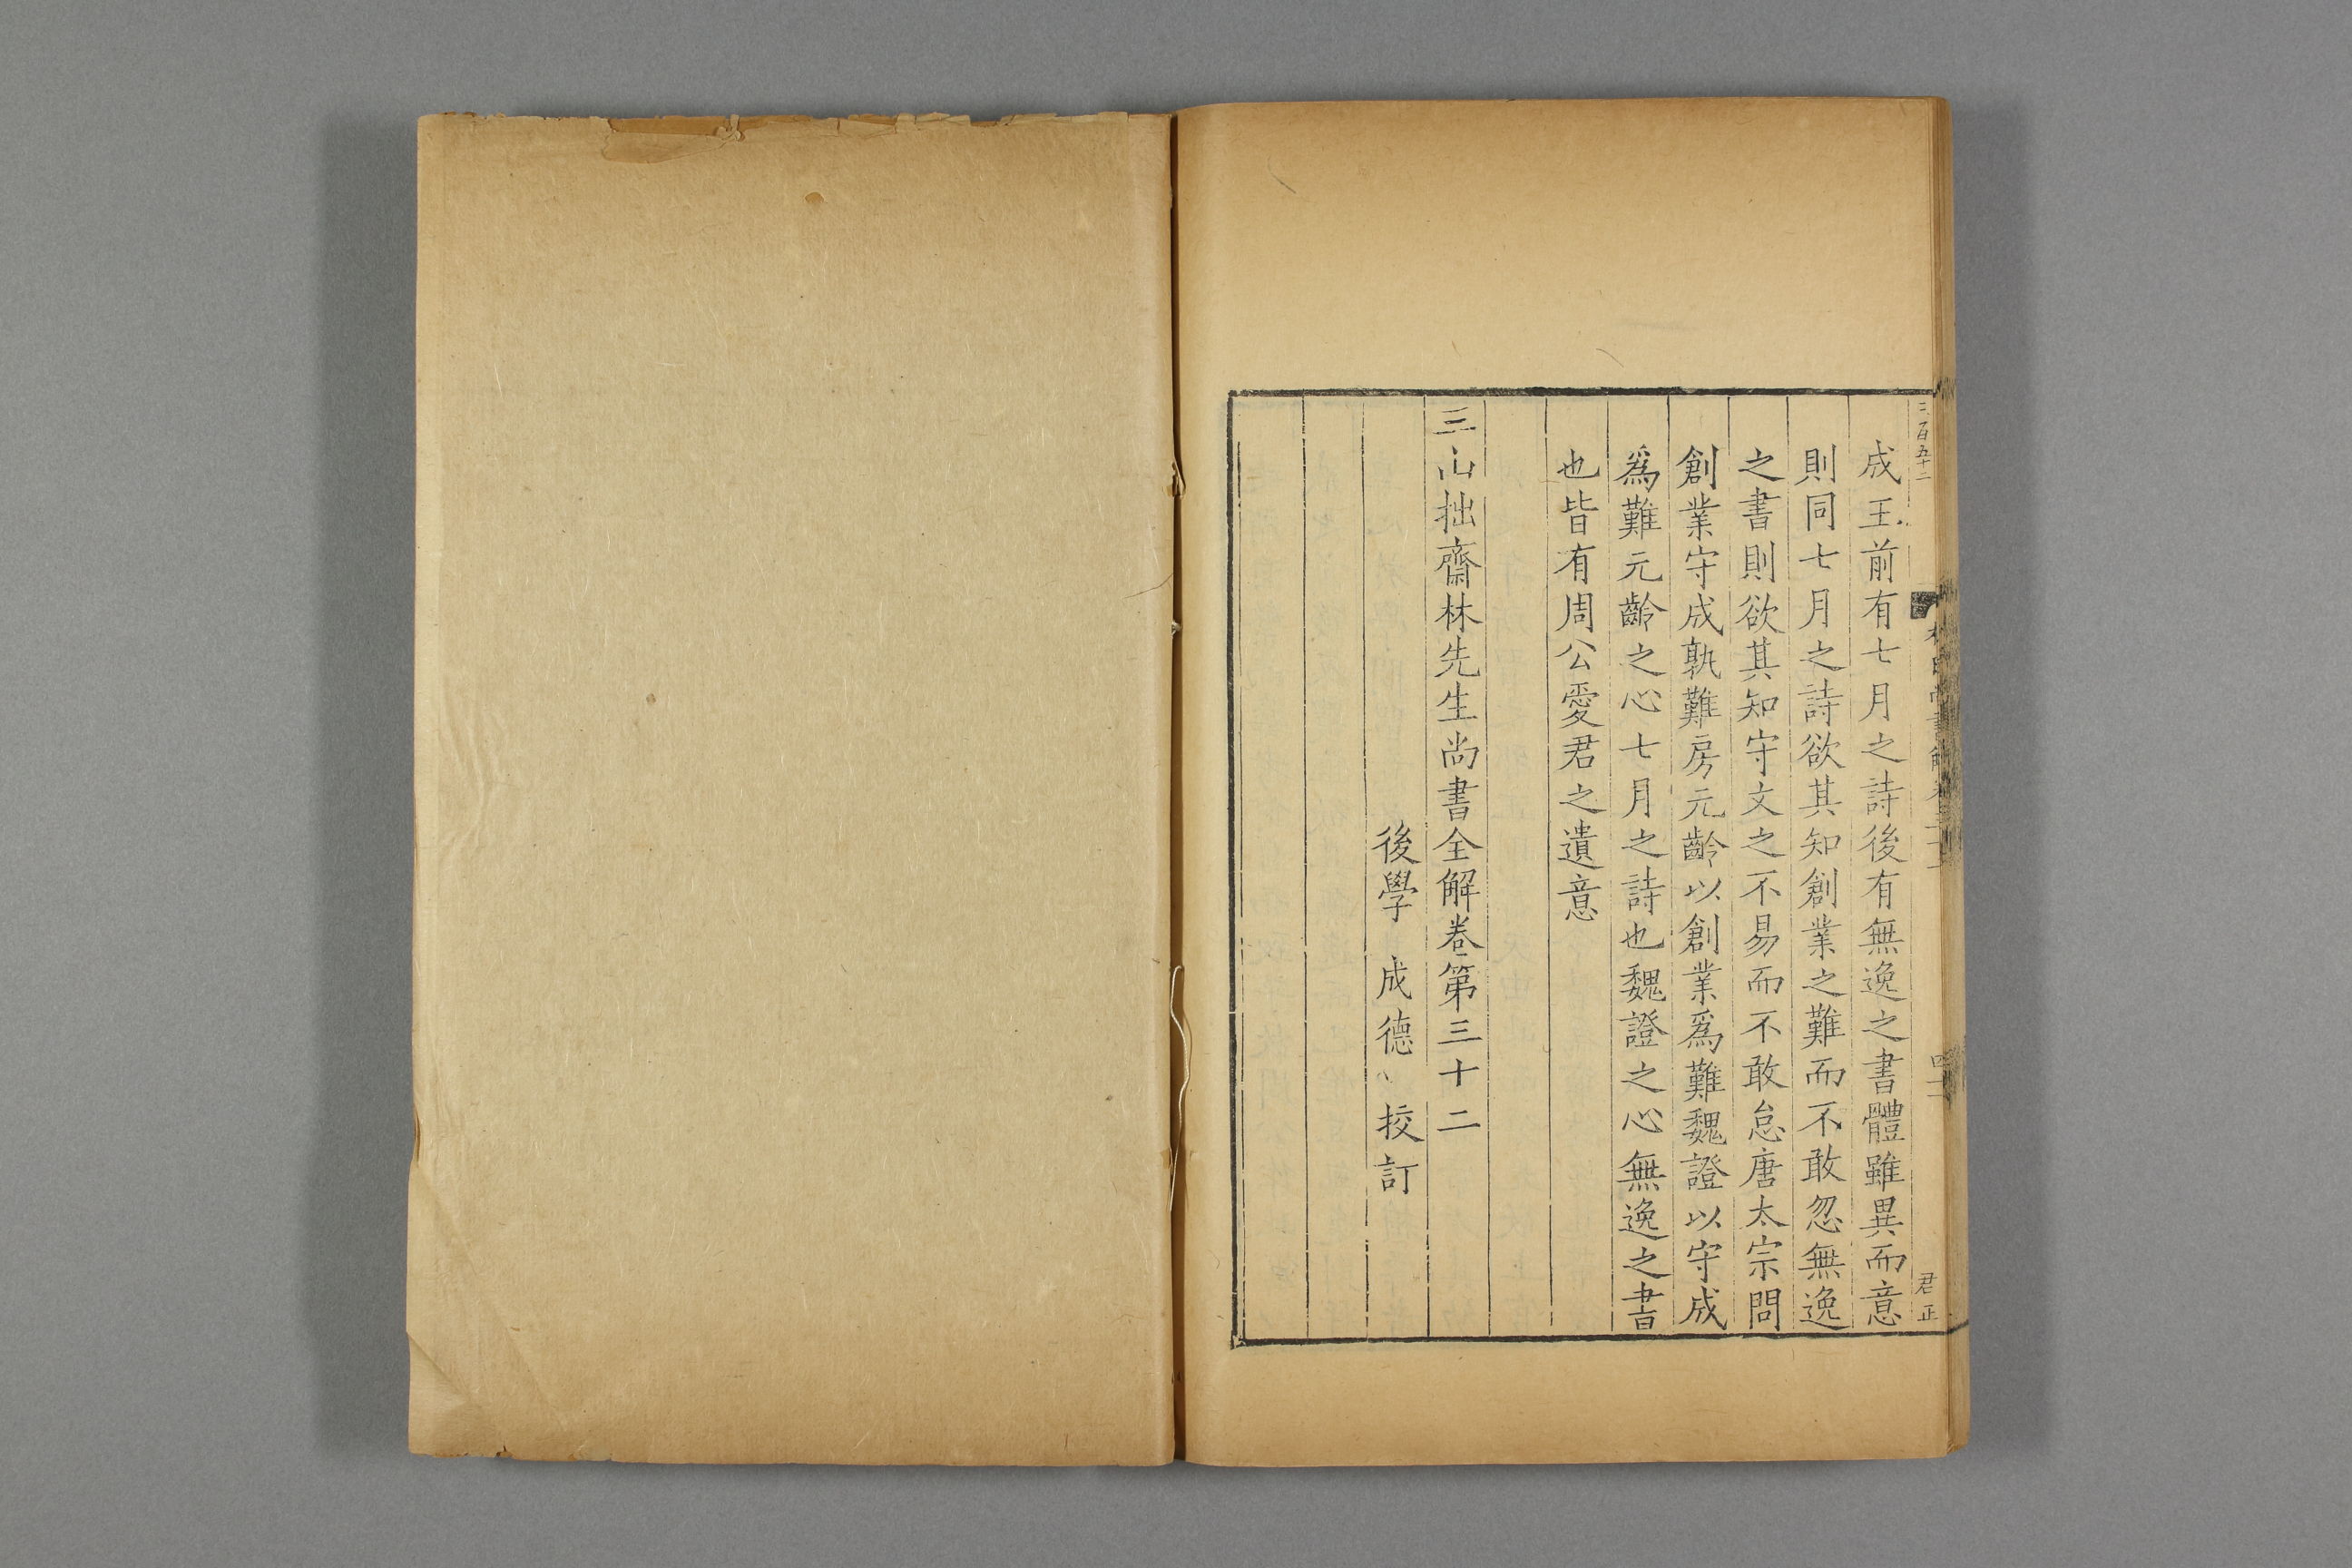 三百五十二
君正
成王前有七月之詩後有無逸之書體雖異而意
則同七月之詩欲其知創業之難而不敢忽無逸
之書則欲其知守文之不易而不敢怠唐太宗問
創業守成孰難房元齡以創業爲難魏證以守成
爲難元齡之心七月之詩也魏證之心無逸之書
也皆有周公愛君之遺意
三山拙齋林先生尚書全解卷第三十二
後學 成德 校訂